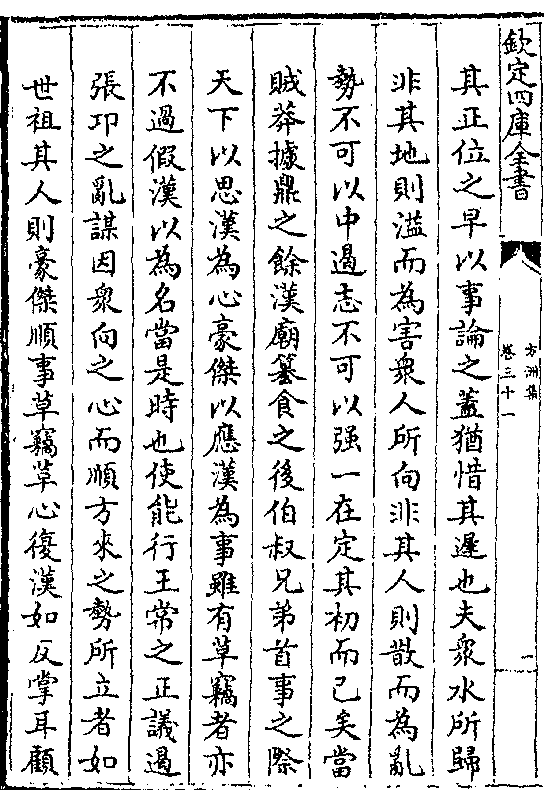 欽定四庫全書
方洲集
卷三十一
一
其正位之早以事論之蓋猶惜其遲也夫衆水所歸
非其地則溢而為害衆人所向非其人則散而為亂
勢不可以中遏志不可以强一在定其初而已矣當
賊莽據鼎之餘漢廟簒食之後伯叔兄弟首事之際
天下以思漢為心豪傑以應漢為事雖有草竊者亦
不過假漢以為名當是時也使能行王常之正議遏
張卬之亂謀因衆向之心而順方來之勢所立者如
世祖其人則豪傑順事草竊草心復漢如反掌耳顧